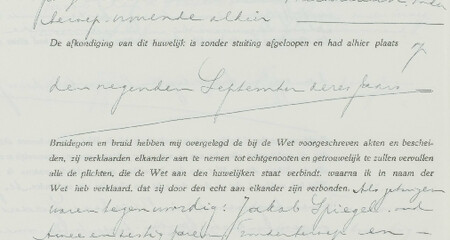 beroep, wonende alhier
De afkondiging van dit huwelijk is zonder stuiting afgeloopen en had alhier plaats
den negenden September dezes jaars
Bruidegom en bruid hebben mij overgelegd de bij de Wet voorgeschreven akten en beschei-
den, zij verklaarden elkander aan te nemen tot echtgenooten en getrouwelijk te zullen vervullen
alle de plichten, die de Wet aan den huwelijken staat verbindt, waarna ik in naam der
Wet heb verklaard, dat zij door den echt aan elkander zijn verbonden. Als getuigen
waren tegenwoordig: Jakob Spiegel, oud
twee en zestig jaren, zonder beroep en